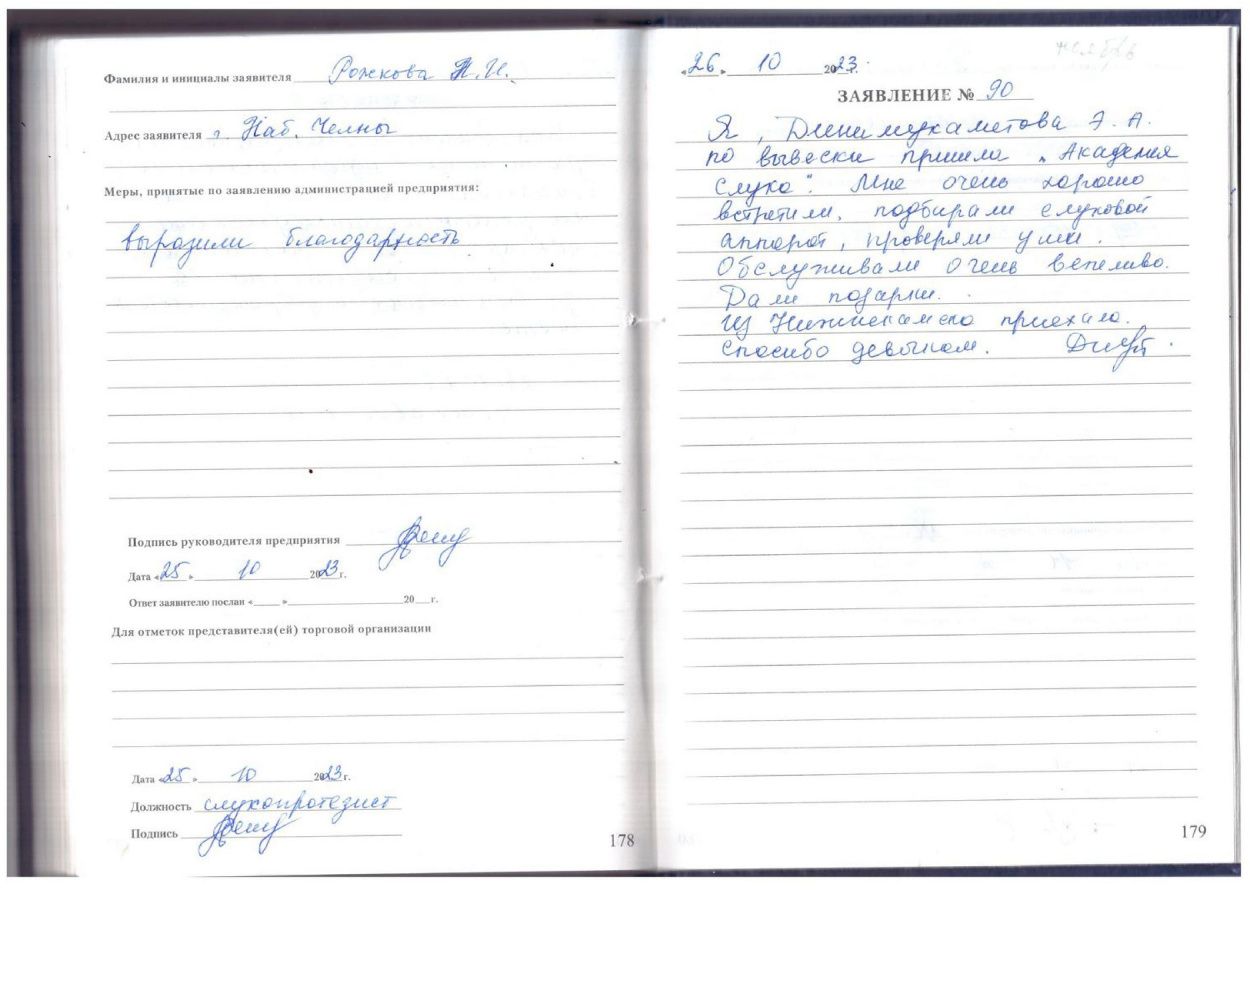 Фамилия и инициалы заявителя Рожкова Н.И.
Адрес заявителя г. Наб. Челны
Меры, принятые по заявлению администрацией предприятия:
выразили благодарность
Подпись руководителя предприятия
Дата «25» 10 2023г.
Ответ заявителю послан «____»____ 20__г.
Для отметок представителя(ей) торговой организации
Дата «25» 10 2023г.
Должность слухопротезист
Подпись
178
«26» 10 2023г.
ЗАЯВЛЕНИЕ № 90
Я, Динмухаметова Э. А.
по вывески пришла "Академия
слуха". Мне очень хорошо
встретили, подбирали слуховой
аппарат, проверяли уши.
Обслуживали очень вепеливо.
Дали подарки.
Из Нижнекамска приехала.
спасибо девочкам.
179